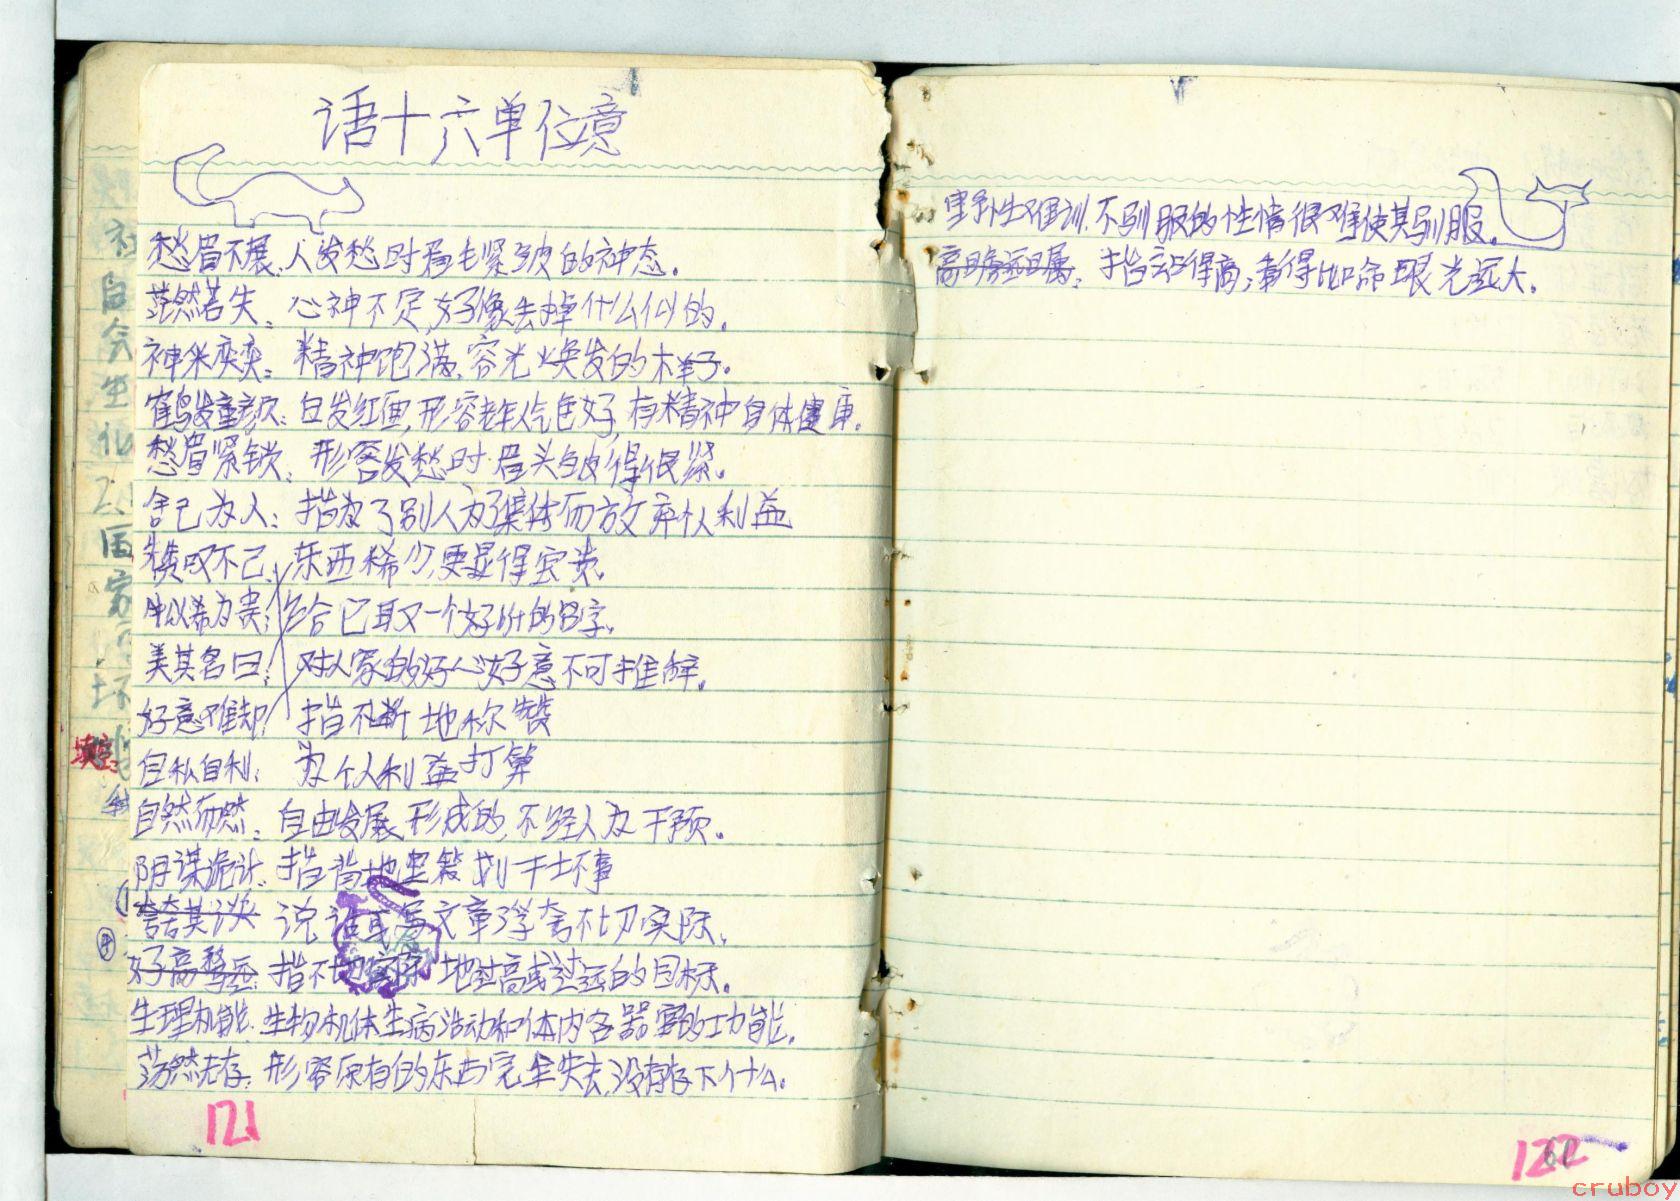 语十六单位意
愁眉不展:人发愁时眉毛紧皱的神态。
茫然若失:心神不定,好像丢掉什么似的。
神采奕奕:精神饱满,容光焕发的样子。
鹤发童颜:白发红面,形容老年人气色好,有精神身体健康。
愁眉紧锁:形容发愁时眉头皱得很紧。
舍己为人:指为了别人为了集体而放弃个人利益
赞叹不己:东西稀少,更显得宝贵。
物以希为贵:给它取一个好听的名字。
美其名曰:对人家的好心好意不可推辞。
好意难却:指不断地称赞
自私自利:为个人利益打算
自然而然:自由发展形成的,不经人为干预。
阴谋诡计:指背地里策划干坏事
夸夸其谈 说话或写文章浮夸不切实际。
好高骛远:指不切实际地过高或过远的目标。
生理机能:生物机体生病活动和体内各器官的功能。
荡然无存:形容原有的东西完全失去,没有存下什么。
121
填空
野性难训:不驯服的性情很难使其驯服。
高瞻远瞩:指站得高,看得比喻眼光远大。
122
cruboy